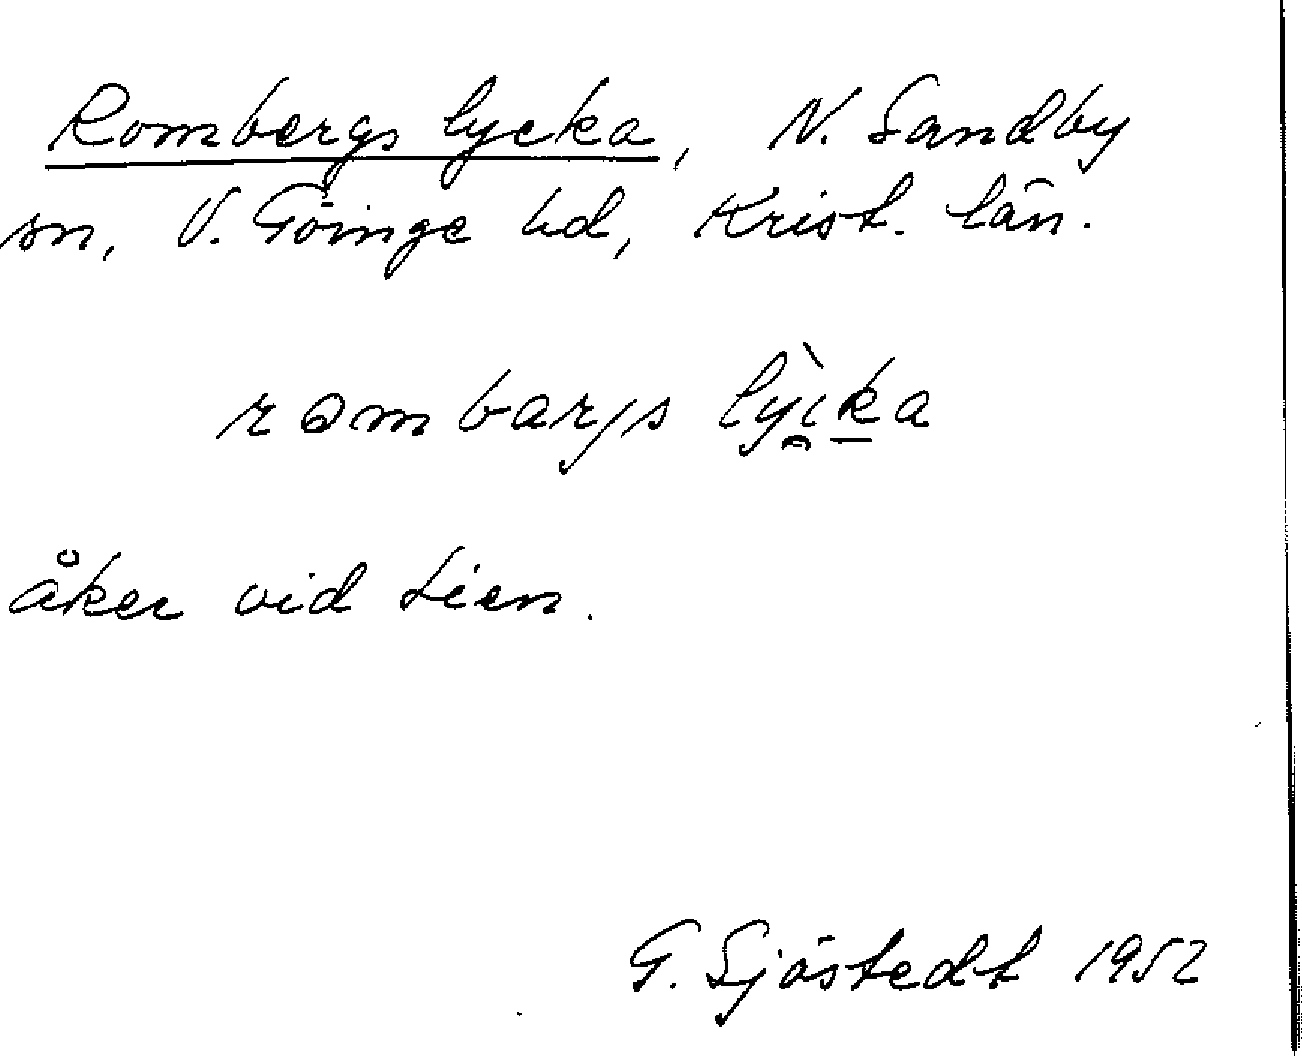 Rombergs lycka, N. Sandby
sn, V. Göinge hd, Krist. län.
lyi̯ka
åker vid Lien.
G. Sjöstedt 1952